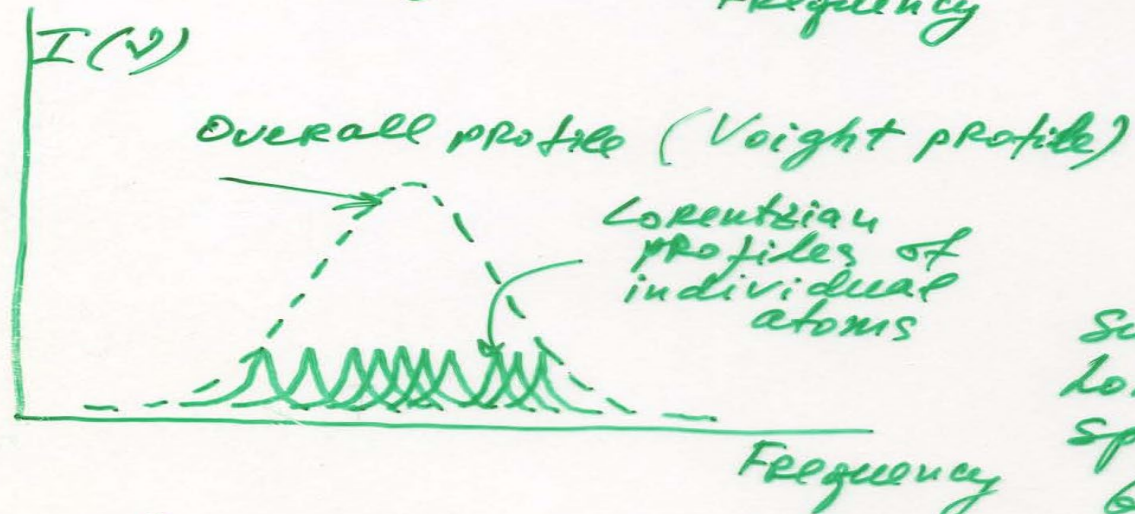 Frequency
I(ν)
Overall profile (Voight profile)
Lorentzian
profiles of
individual
atoms
Frequency